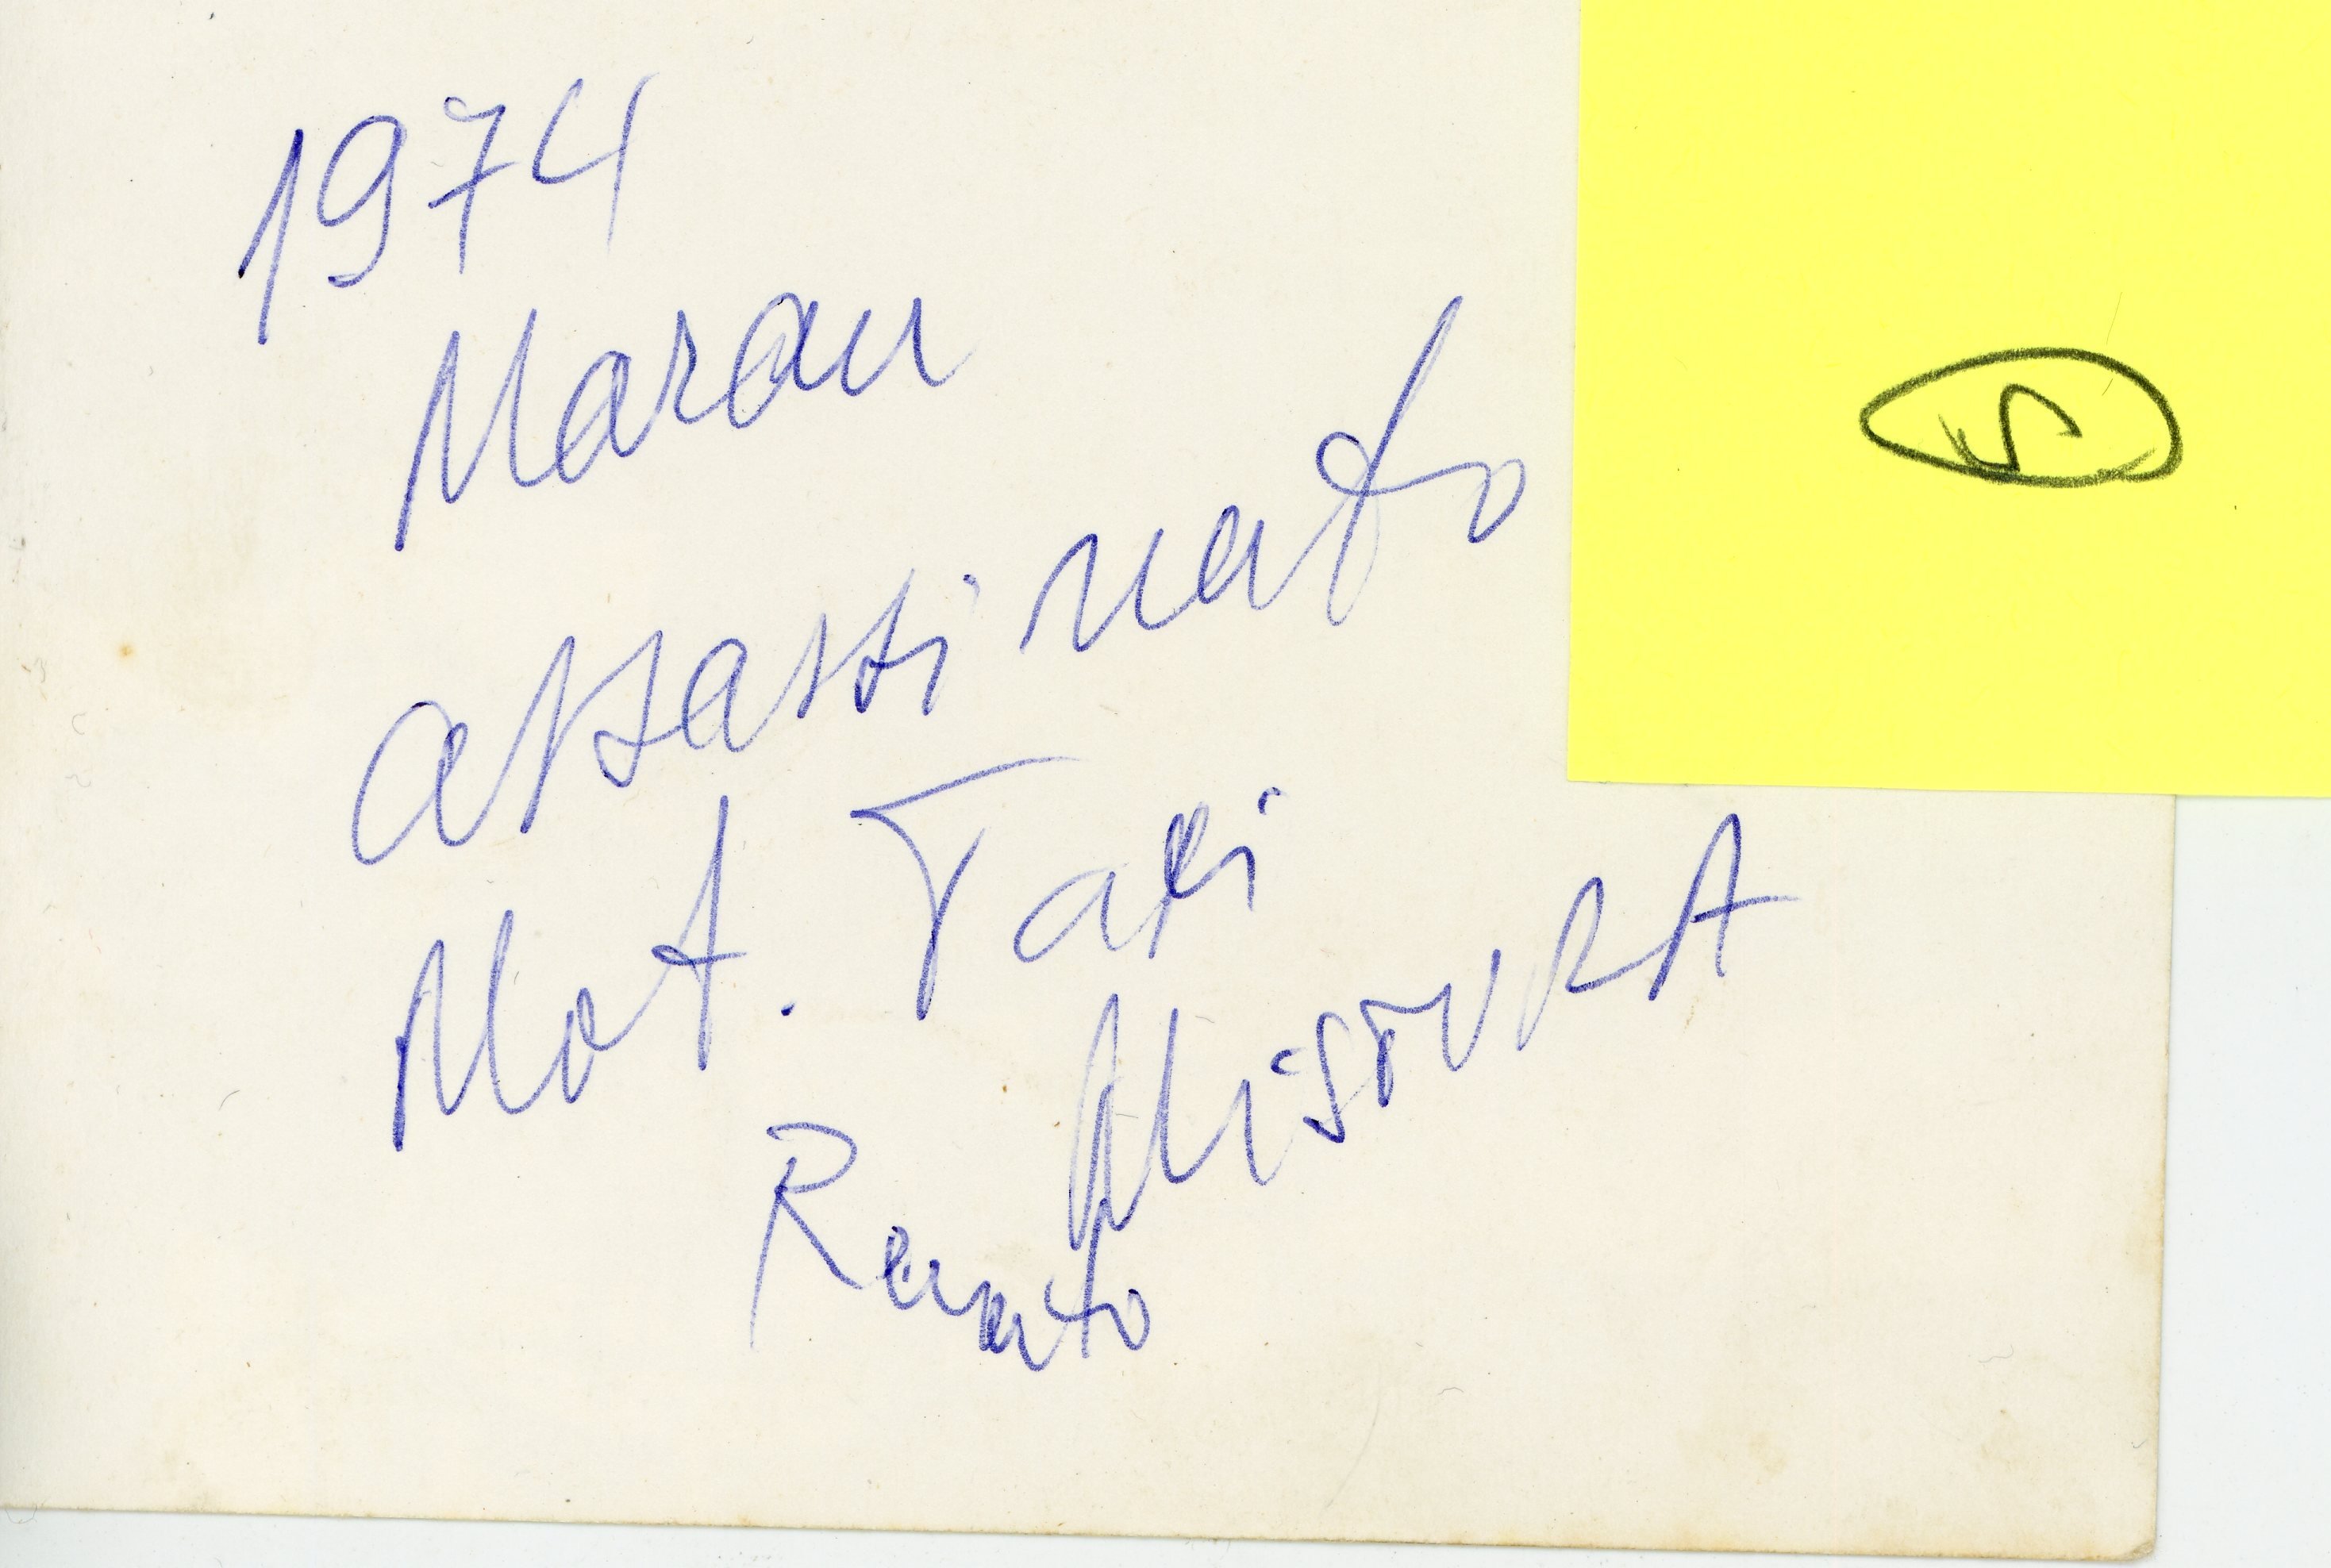 1974
Marau
assassinato
Mot. Taxi
MisTURA
Renato